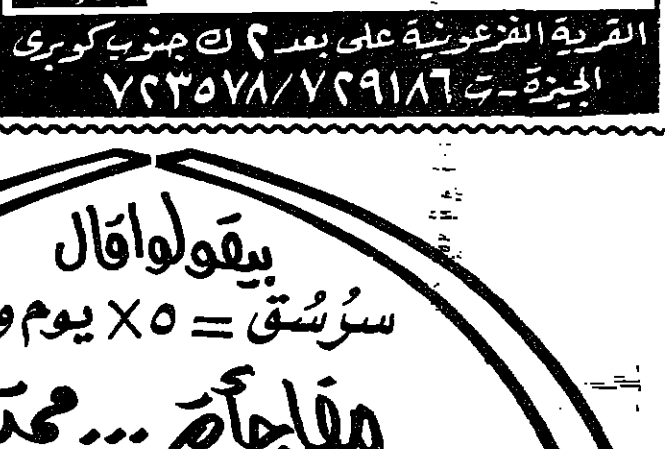 القرية الفرعونية على بعد ٢ ك جنوب كوبرى
الجيزة - ت ٧٢٩١٨٦/٧٢٣٥٧٨
بيقولوا قال
سرُسُق = ٥ × يوم و
مفاجأة ... محمد